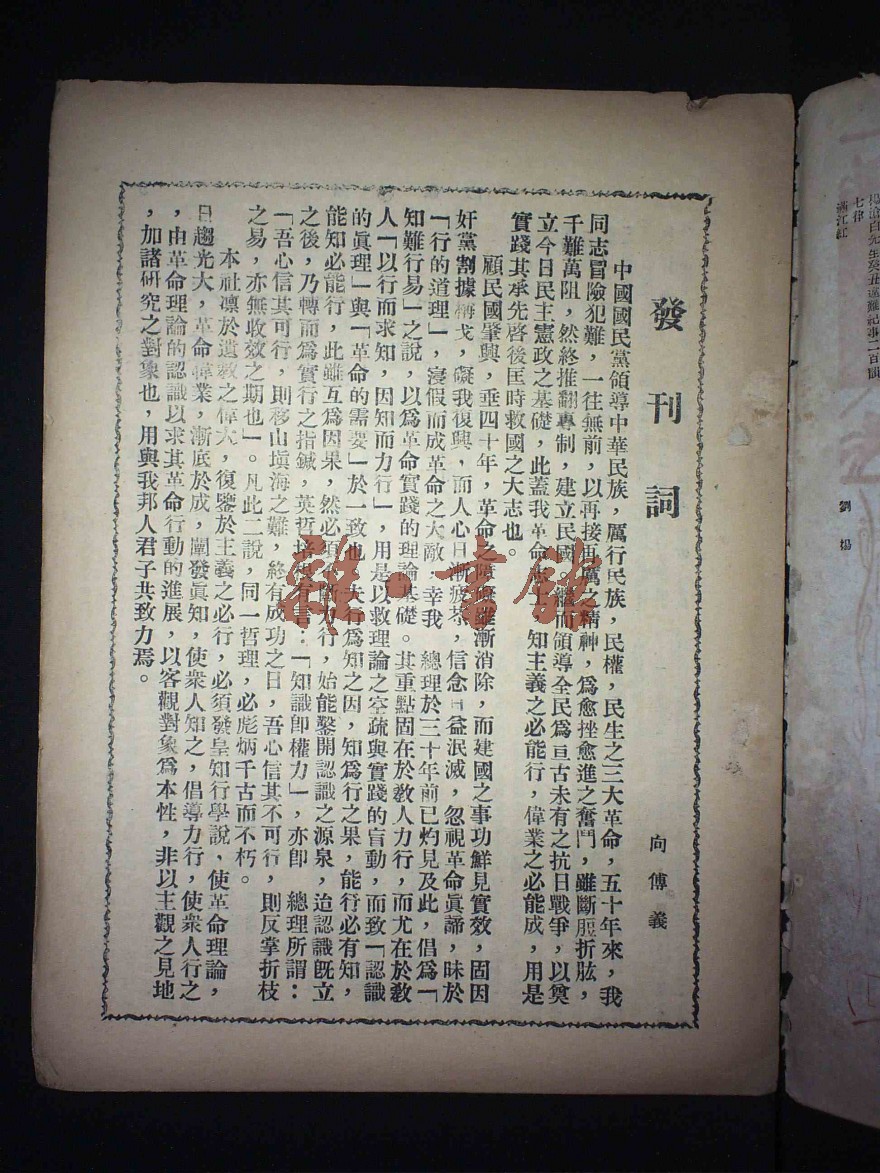 發刊詞
向傅義
中國國民黨領導中華民族，厲行民族，民權，民生之三大革命，五十年來，我
同志冒險犯難，一往無前，以再接再厲之精神，爲愈挫愈進之奮鬥，雖斷脰折肱，
千難萬阻，然終推翻專制，建立民國，繼而領導全民爲亘古未有之抗日戰爭，以奠
立今日民主憲政之基礎，此蓋我革命志士，知主義之必能行，偉業之必能成，用是
實踐其承先啓後匡時救國之大志也。
顧民國肇興，垂四十年，革命之障礙雖漸消除，而建國之事功鮮見實效，固因
奸黨割據梅戈，礙我復興，而人心日漸疲苶，信念日益泯滅，忽視革命眞諦，昧於
「行的道理」，寖假而成革命之大敵，幸我　總理於三十年前已灼見及此，倡爲「
知難行易」之說，以爲革命實踐的理論基礎。其重點固在於敎人力行，而尤在於敎
人「以行而求知，因知而力行」，用是以救理論之空疏與實踐的盲動，而致「認識
的眞理」與「革命的需要」於一致也，夫行爲知之因，知爲行之果，能行必有知，
能知必能行，此雖互爲因果，然必須力行，始能鑿開認識之源泉，迨認識旣立
之後，乃轉而爲實行之指鍼，英哲培根有言：「知識卽權力」，亦卽　總理所謂：
「吾心信其可行，則移山塡海之難，終有成功之日，吾心信其不可行，則反掌折枝
之易，亦無收效之期也」。凡此二說，同一哲理，必彪炳千古而不朽。
本社凛於遺敎之偉大，復鑒於主義之必行，必須發皇知行學說，使革命理論，
日趨光大，革命偉業，漸底於成，闡發眞知，使衆人知之，倡導力行，使衆人行之
，由革命理論的認識以求其革命行動的進展，以客觀對象爲本性，非以主觀之見地
，加諸研究之對象也，用與我邦人君子共致力焉。
七律
滿江紅
劉揚